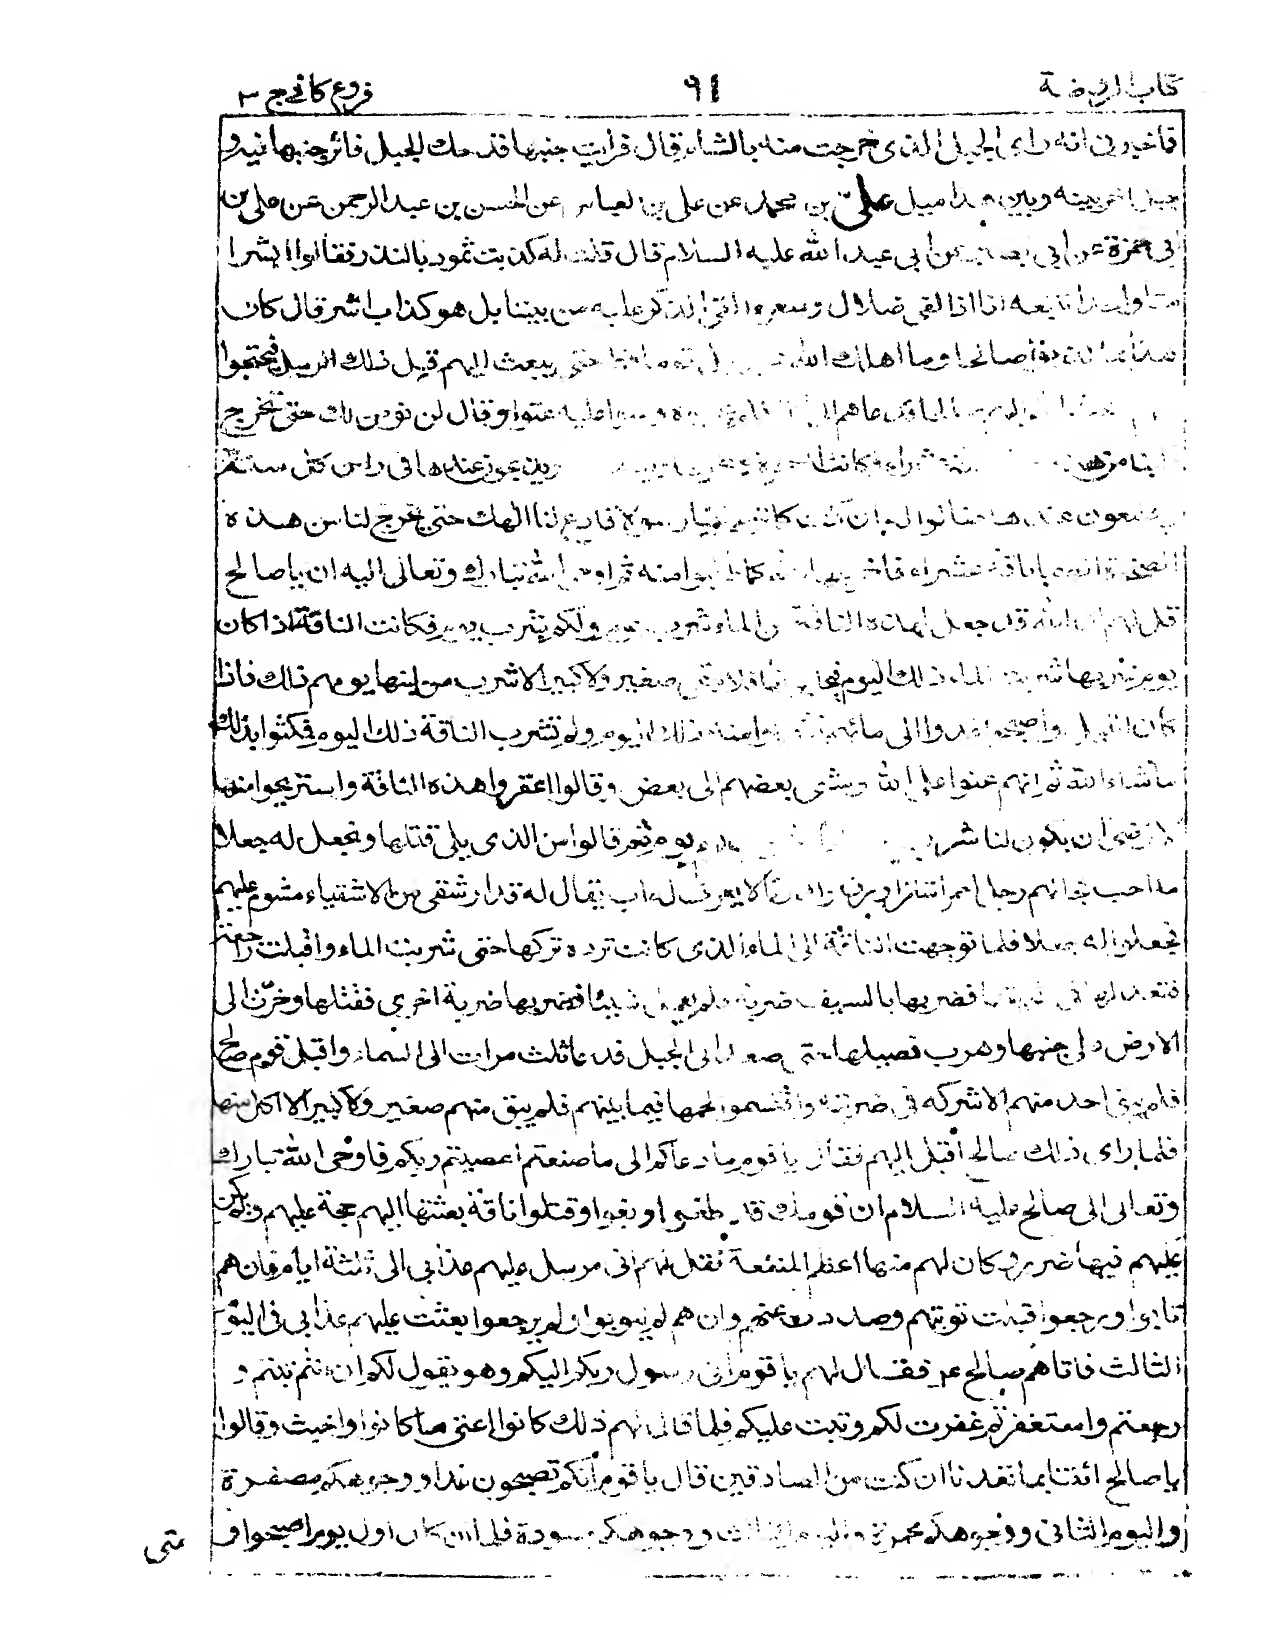 كتاب الروضة ٩١ فروع كافي ج ٣
فاخبروني انه راى الجبل الذى خرجت منه بالشام قال فرايت جنبها قد حك الجبل فاثر جنبها فيه و
جبل اخر بينه وبين هذا ميل علي بن محمد عن علي بن العباس عن الحسن بن عبد الرحمن عن علي بن
ابى حمزة عن ابى بصير عن ابى عبد الله عليه السلام قال قلت له كذبت ثمود بالنذر فقالوا ابشرا
منا واحدا نتبعه انا اذا لفى ضلال وسعر االقى الذكر عليه من بيننا بل هو كذاب اشر قال كان
هذا بما كذبوا صالحا وما اهلك الله قوما قط حتى يبعث اليهم قبل ذلك الرسل فيحتجوا
اليهم صالحا فدعاهم الى عليه عتوا وقال لن نؤمن لك حتى تخرج
لنا من هذه عشراء وكانت الصخرة ويذبحون عندها فى راس كل سنة
ويجتمعون عندها فقالوا له ان كنت كما تزعم نبيا رسولا فادع لنا الهك حتى يخرج لنا من هذه
الصخرة الصماء ناقة عشراء فاخرجها الله كما طلبوا منه ثم اوحى الله تبارك وتعالى اليه ان يا صالح
قل لهم ان الله قد جعل لهذه الناقة من الماء شرب يوم ولكم شرب يوم فكانت الناقة اذا كان
يوم شربها شربت الماء ذلك اليوم فيحلبونها فلا يبقى صغير ولا كبير الا شرب من لبنها يومهم ذلك فاذا
كان الليل واصبحوا غدوا الى مائهم فشربوا منه ذلك اليوم ولم تشرب الناقة ذلك اليوم فمكثوا بذلك
ما شاء الله ثم انهم عتوا على الله ومشى بعضهم الى بعض وقالوا اعقروا هذه الناقة واستريحوا منها
لا نرضى ان يكون لنا شرب يوم ثم قالوا من الذى يلى قتلها ونجعل له جعلا
ما احب فجائهم رجل احمر اشقر ازرق ولد زنا لا يعرف له اب يقال له قدار شقى من الاشقياء مشوم عليهم
فجعلوا له جعلا فلما توجهت الناقة الى الماء الذى كانت ترده تركها حتى شربت الماء واقبلت راجعة
فقعد لها فى طريقها فضربها بالسيف ضربة فلم يعمل شيئا فضربها ضربة اخرى فقتلها وخرت الى
الارض على جنبها وهرب فصيلها حتى صعد الى الجبل فرغا ثلث مرات الى السماء واقبل قوم صالح
فلم يبق احد منهم الا شركه فى ضربته واقتسموا لحمها فيما بينهم فلم يبق منهم صغير ولا كبير الا اكل منها
فلما راى ذلك صالح اقبل اليهم فقال يا قوم ما دعاكم الى ما صنعتم اعصيتم ربكم فاوحى الله تبارك
وتعالى الى صالح عليه السلام ان قومك قد طغوا وبغوا وقتلوا ناقة بعثتها اليهم حجة عليهم ولم يكن
عليهم فيها ضرر وكان لهم منها اعظم المنفعة فقل لهم انى مرسل عليهم عذابى الى ثلثة ايام فان هم
تابوا ورجعوا قبلت توبتهم وصددت عنهم وان هم لم يتوبوا ولم يرجعوا بعثت عليهم عذابى فى اليوم
الثالث فاتاهم صالح ع فقال لهم يا قوم انى رسول ربكم اليكم وهو يقول لكم ان انتم تبتم و
رجعتم واستغفرتم غفرت لكم وتبت عليكم فلما قال لهم ذلك كانوا اعتى ما كانوا واخبث وقالوا
يا صالح ائتنا بما تعدنا ان كنت من الصادقين قال يا قوم انكم تصبحون غدا ووجوهكم مصفرة
واليوم الثانى ووجوهكم محمرة واليوم الثالث ووجوهكم مسودة فلما ان كان اول يوم اصبحوا و
متى